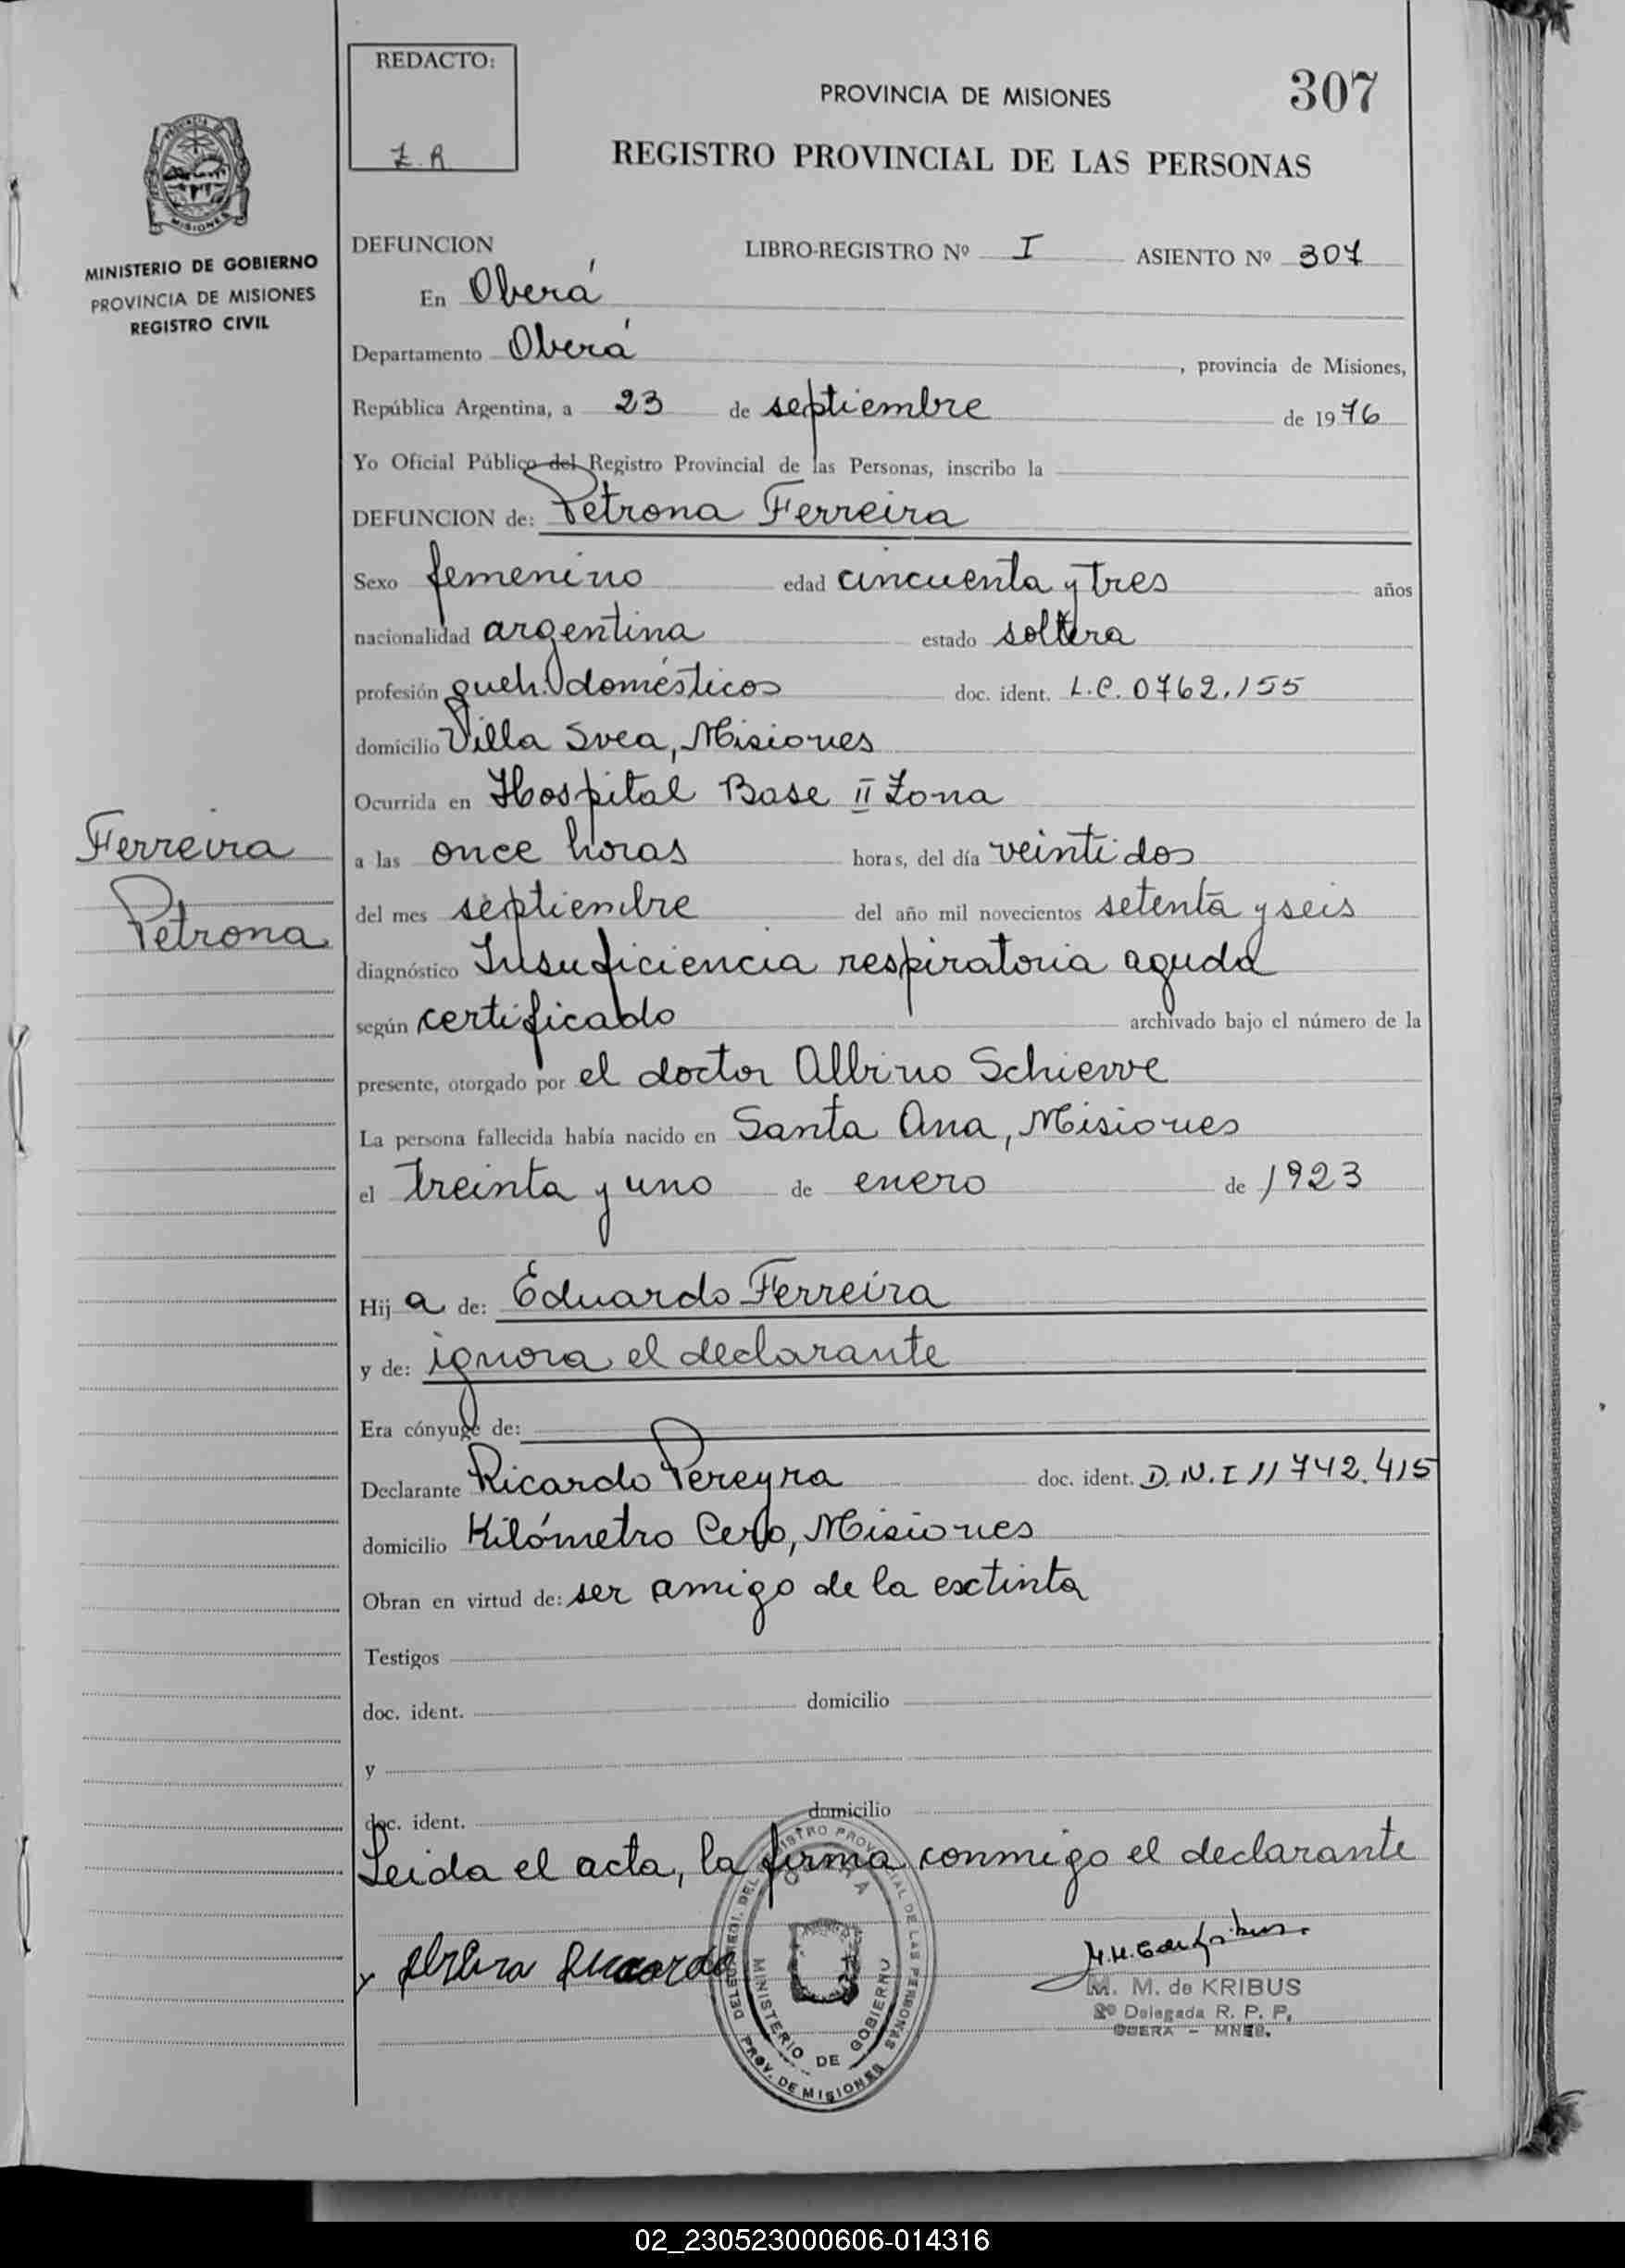 REDACTO:
Z.A
PROVINCIA DE MISIONES
307
REGISTRO PROVINCIAL DE LAS PERSONAS
MISIONES
MINISTERIO DE GOBIERNO
PROVINCIA DE MISIONES
REGISTRO CIVIL
DEFUNCION LIBRO-REGISTRO Nº I ASIENTO Nº 307
En Oberá
Departamento Oberá, provincia de Misiones,
República Argentina, a 23 de septiembre de 1976
Yo Oficial Público del Registro Provincial de las Personas, inscribo la
DEFUNCION de: Petrona Ferreira
Sexo femenino edad cincuenta y tres años
nacionalidad argentina estado soltera
profesión queh. domésticos doc. ident. L.C. 0762.155
domicilio Villa Svea, Misiones
Ocurrida en Hospital Base II Zona
Ferreira
Petrona
a las once horas horas, del día veintidos
del mes septiembre del año mil novecientos setenta y seis
diagnóstico Insuficiencia respiratoria aguda
según certificado archivado bajo el número de la
presente, otorgado por el doctor Albino
La persona fallecida había nacido en Santa Ana, Misiones
el treinta y uno de enero de 1923
Hija de: Eduardo Ferreira
y de: ignora el declarante
Era cónyuge de:
Declarante Ricardo Pereyra doc. ident. D.N.I 11742.415
domicilio Kilómetro Cero, Misiones
Obran en virtud de: ser amigo de la extinta
Testigos
doc. ident. domicilio
y
doc. ident. domicilio
Leida el acta, la firma conmigo el declarante
M. M. de KRIBUS
2º Delegada R. P. P.
OBERA - MNES.
MINISTERIO DE GOBIERNO
PROV. DE MISIONES
02_230523000606-014316